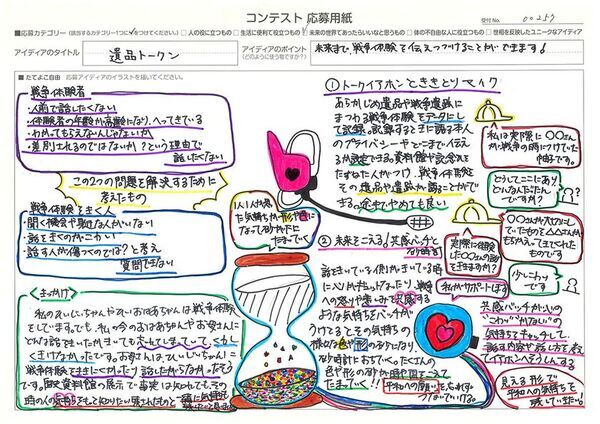 コンテスト 応募用紙
受付No. 00257
■応募カテゴリー
□人の役に立つもの
□生活に便利で役立つもの
未来の世界であったらいいなと思うもの
□体の不自由な人に役立つもの
□世相を反映したユニークなアイディア
アイディアのタイトル
遺品トークン
アイディアのポイント
未来まで戦争体験を伝えつづけることができます!
■たてよこ自由 応募アイディアのイラストを描いてください。
戦争体験者
・人前で話したくない
・体験者の年齢が高齢になり、へってきている
・わかってもらえないんじゃないか
・差別されるのではないか?という理由で
話したくない
この2つの問題を解決するために
考えたもの
戦争体験をきく人
・聞く機会や身近な人がいない
・話をきくのがこわい
・話す人が傷つくのでは?と考え
質問できない
<きっかけ>
私のひいじいちゃんやひいおばあちゃんは戦争体験
をしています。でも、私の今のおばあちゃんやお母さんに
どんな話をきいたかきいても忘れてしまっていて
戦争体験を
です。
1人1人が感じ
た気持ちが形や色に
なって砂時計に
たまっていく
①トークイアホンとききとりマイク
あらかじめ遺品や戦争遺跡に
まつわる戦争体験をデータにし
て記録。記録するときに話す本人
のプライバシーやどこまで伝える
か設定できる。資料館や記念館を
たずねた人がつけ、戦争体験
とその遺品や遺跡から語ることがで
きる。途中でやめても良い
私は実際に○○さん
が戦争の時につけていた
帽子です。
どうしてここにあり
どんな人だったん
でしょうか?
○○さんが大切にし
ていたものを△△さんが
もちかえってきてくれた
ものです
実際に体験
した○○さんの話
をききますか?
少しこわい
です
私がサポートするよ
②未来をこえる!共感バッチと
砂時計
話をきいている側がきいている時
に心がギュッとなったり、戦争
への怒りや悲しみで共感する
ような気持ちをバッチが
うけとるとその気持ちの
様な色や形の砂になり、
砂時計におちていく。たくさんの
色や形の砂が時や国をこえて
たまっていく!!平和への願いをとだえず
つないでいける。
共感バッチが人の
"こわい""かなしい"の
気持ちをキャッチして
語る内容や話し方を考え
てイアホンへそうしんする
見える形で
平和への気持ちを
残していきたい!